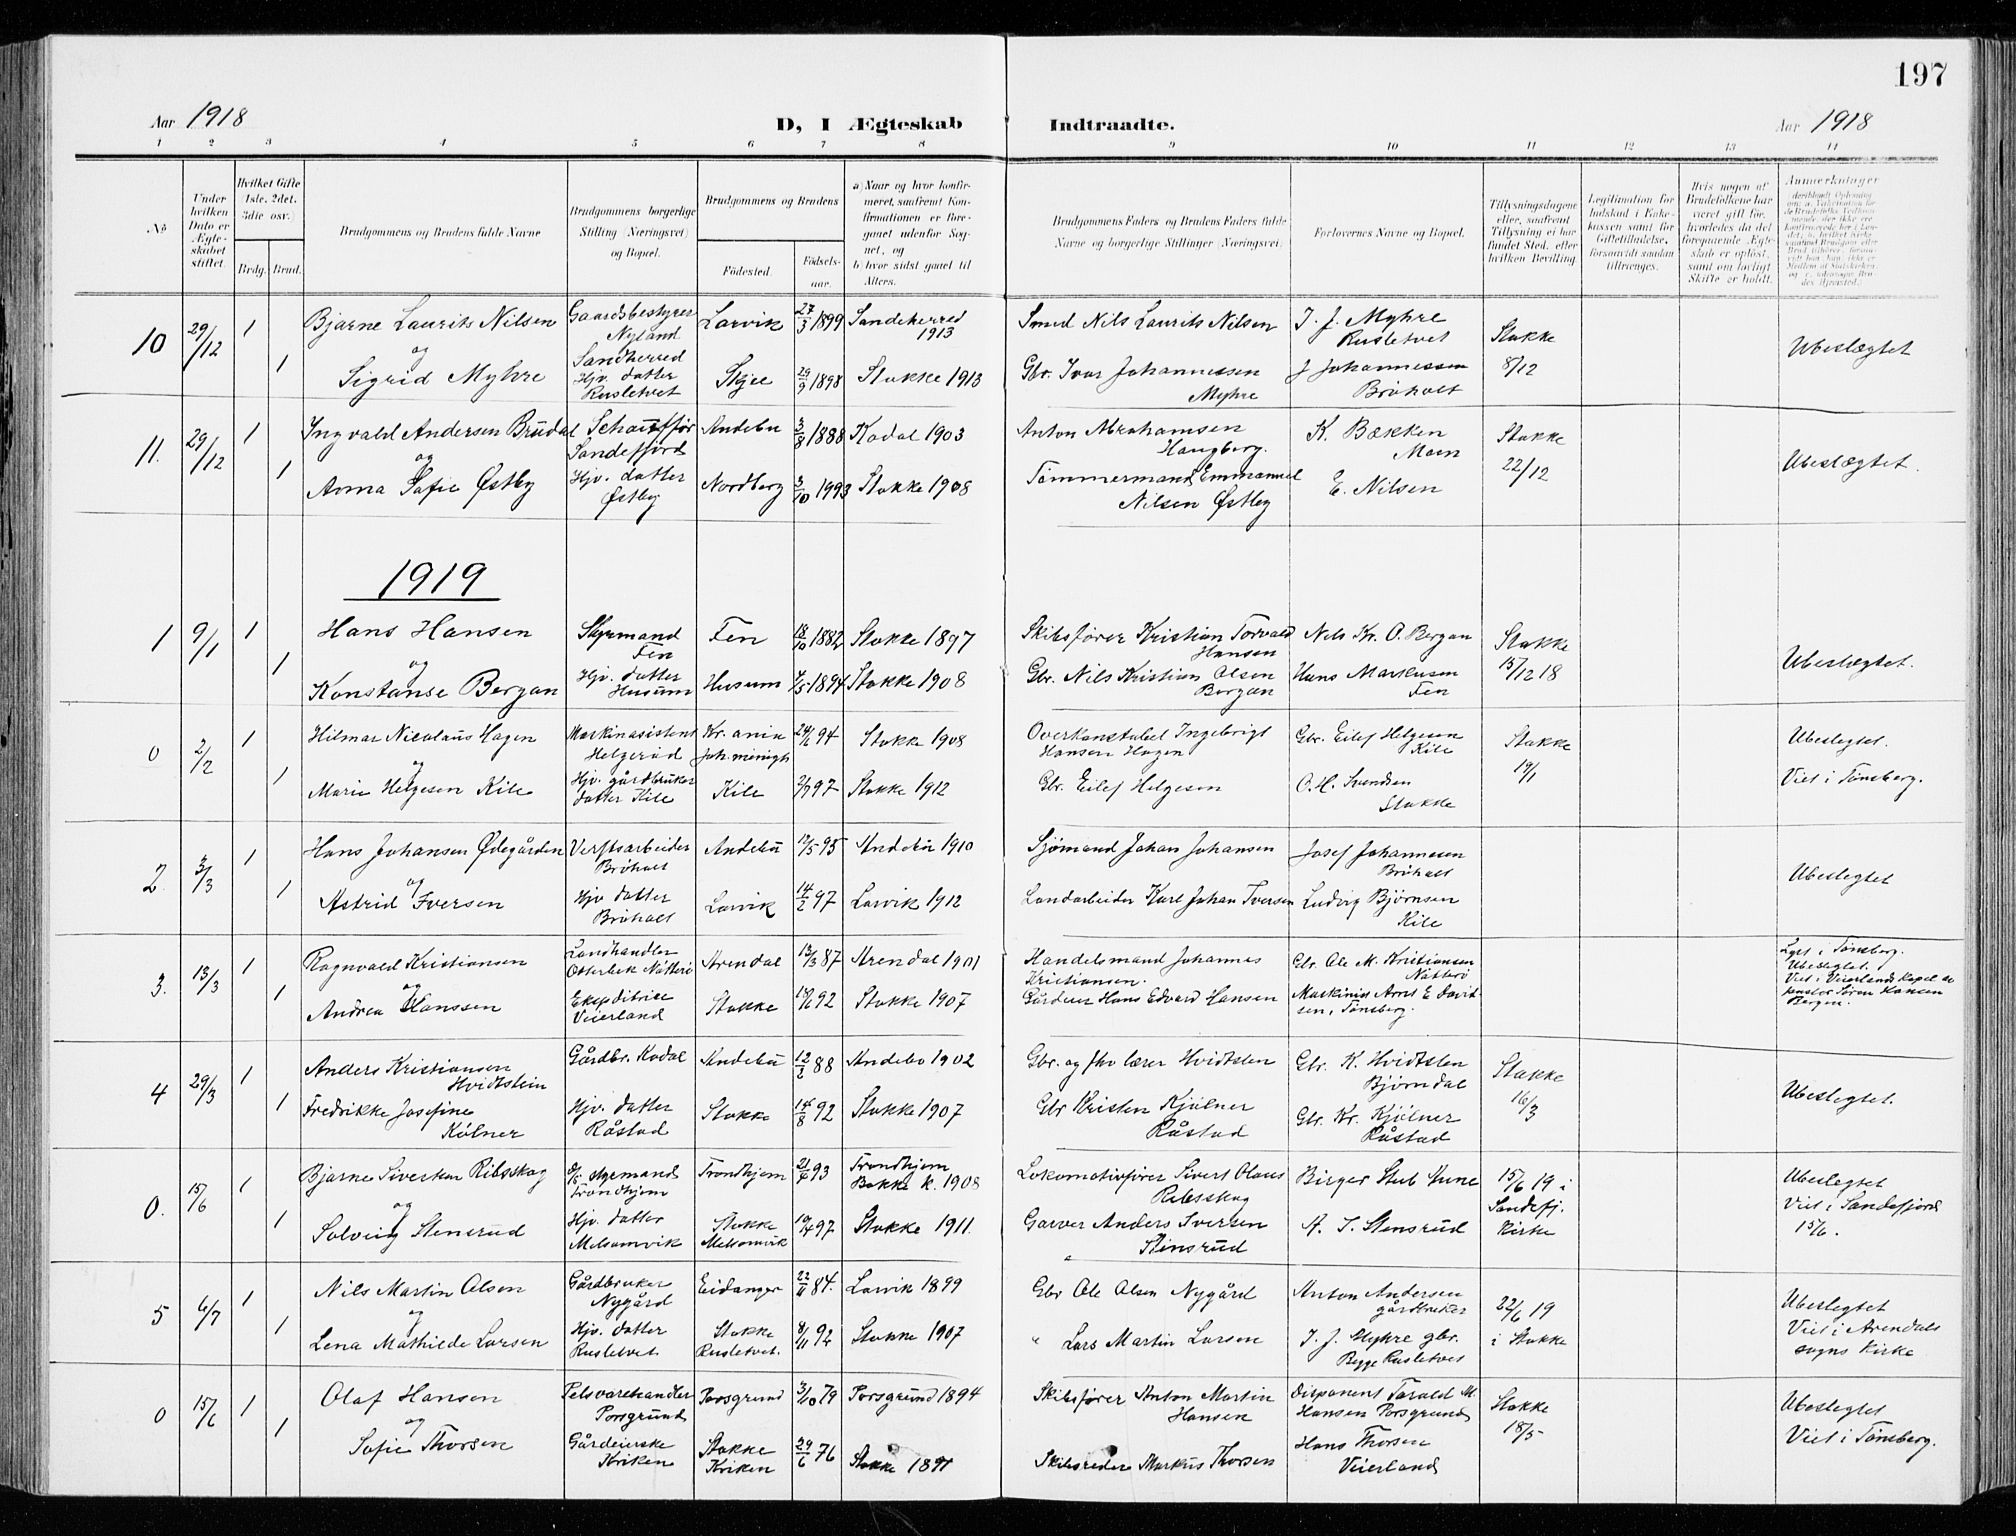 197
Aar 1918
D, I Ægteskab Indtraadte.
Aar 1918
1 2 3 4 5 6 7 8 9 10 11 12 13 14
No
Under hvilken Dato er Ægteskabet stiftet.
Hvilket Gifte 1ste, 2det, 3die osv.)
Brdg. Brud.
Brudgommens og Brudens fulde Navne
Brudgommens borgerlige Stilling (Næringsvei) og Bopæl.
Brudgommens og Brudens
Födested.
Födselsaar.
a) Naar og hvor konfirmeret, saafremt Konfirmationen er foregaaet udenfor Sognet, og
b) hvor sidst gaaet til Alters.
Brudgommens Faders og Brudens Faders fulde Navne og borgerlige Stillinger (Næringsvei)
Forlovernes Navne og Bopæl.
Tillysningsdagene eller, saafremt Tillysning ei har fundet Sted, efter hvilken Bevilling.
Legitimation for Indskud i Enkekassen samt for Giftetilladelse, forsaavidt saadan tiltrænges.
Hvis nogen af Brudefolkene har været gift för, hvorledes da det foregaaende Ægteskab er oplöst, samt om lovligt Skifte er holdt.
Anmerkninger
10 29/12 1 Bjarne Laurits Nilsen Gaardsbestyrer Nyland Sandherred Larvik 27/3 1899 Sandeherred 1913 Smed Nils Laurits Nilsen I. J. Myhre Rusletvet Stokke 8/12 Ubeslægtet
og
1 Sigrid Myhre Hjv. datter Rusletvet Skjee 29/9 1898 Stokke 1913 Gbr. Ivar Johannessen Myhre J Johannessen Bröholt
11. 29/12 1 Ingvald Andersen Brudal Schaufför Sandefjord Andebu 3/8 1888 Kodal 1903 Anton Abrahamsen Haugberg. K. Bækken Moen Stokke 22/12 Ubeslægtet.
og
1 Anna Sofie Østby Hjv. datter Østby Nordberg 3/10 1993 Stokke 1908 Tömmermand Emmanuel Nilsen Østby E. Nilsen
1919
1 9/1 1 Hans Hansen Styrmand Fen Fen 18/10 1882 Stokke 1897 Skibsfører Kristian Torvald Hansen Nels Kr. O. Bergan Stokke 15/12 18 Ubeslægtet.
og
1 Konstanse Bergan Hjv. datter Husum Husum 7/5 1894 Stokke 1908 Gbr. Nils Kristian Olsen Bergan Hans Markusen Fen
0 2/2 1 Hilmar Nicolaus Hagen Maskinasistent Helgerød Kr. ania Joh. menigh 24/6 94 Stokke 1908 Overkonstabel Ingebrigt Hansen Hagen Gbr. Eilef Helgesen Kile Stokke 19/1 Ubeslegtet. Viet i Tønsberg.
og
1 Marie Helgesen Kile Hjv. gårdbruker datter Kile Kile 2/7 97 Stokke 1912 Gbr. Eilef Helgesen O. H. Svendsen Stokke
2 3/3 1 Hans Johansen Ødegården Verftsarbeider Bröholt Andebu 12/5 95 Andebu 1910 Sjømand Johan Johansen Josef Johannesen Bröholt Ubeslegtet
og
1 Astrid Iversen Hjv datter Bröholt Larvik 14/2 97 Larvik 1912 Landarbeider Karl Johan Iversen Ludvig Bjørnsen Kile
3. 13/3 1 Ragnvald Kristiansen Landhandler Osterbek Nøtterö Arendal 13/3 87 Arendal 1901 Handelsmand Johannes Kristiansen. Gbr. Ole M. Kristiansen Nøtterö Lyst i Tønsberg. Ubeslegtet. Viet i Veierland kapel av pastor Søren Hansen Bergen.
og
1 Andrea Hanssen Ekspeditrice Veierland Stokke 10/6 92 Stokke 1907 Gårdeier Hans Edvard Hansen Maskinist Arnt E Davidsen, Tønsberg.
4 29/3 1 Anders Kristiansen Hvidtstein Gårdbr. Kodal Andebu 12/2 88 Andebo 1902 Gbr. og fhv lærer Hvidtsten Gbr. K. Hvidtsten Bjørndal Stokke 16/3 Ubeslegtet.
1 Fredrikke Josefine Kölner Hjv. datter Råstad Stokke 14/8 92 Stokke 1907 Gbr Kristen Kjölner Råstad Gbr. Kr. Kjölner Råstad
0. 15/6 1 Bjarne Sivertsen Ribsskog styrmand Trondhjem Trondhjem 21/7 93 Trondhjem Bakke k. 1908 Lokomotivfører Sivert Olaus Ribsskog Birger Stub 15/6 19 i Sandefj. kirke Ubeslegtet Viet i Sandefjord 15/6.
og
1 Solveig Stensrud Hjv. datter Melsomvik Stokke Melsomvik 19/4 97 Stokke 1911. Garver Anders Iversen Stensrud A. I. Stensrud
5 6/7 1 Nils Martin Olsen Gårdbruker Nygård Eidanger 22/11 84. Larvik 1899 Gbr Ole Olsen Nygård Anton Andersen gårdbruker 22/6 19 i Stokke Ubeslegtet Viet i Arendals sogns kirke
og
1 Lena Mathilde Larsen Hjv. datter Rusletvet. Stokke Rusletvet. 8/11 92 Stokke 1907 " Lars Martin Larsen I. J. Myhre gbr. Begge Rusletvet
0 15/6 1 Olaf Hansen Pelsvarehandler Porsgrund Porsgrund 3/10 79 Porsgrund 1894 Skibsfører Anton Martin Hansen Disponent Torald M. Hansen Porsgrund Stokke 18/5 Ubeslegtet Viet i Tønsberg.
og
1 Sofie Thorsen Gårdeierske Kriken Stokke Kriken 29/6 76 Stokke 1891 Skibsreder Markus Thorsen Hans Thorsen Veierland